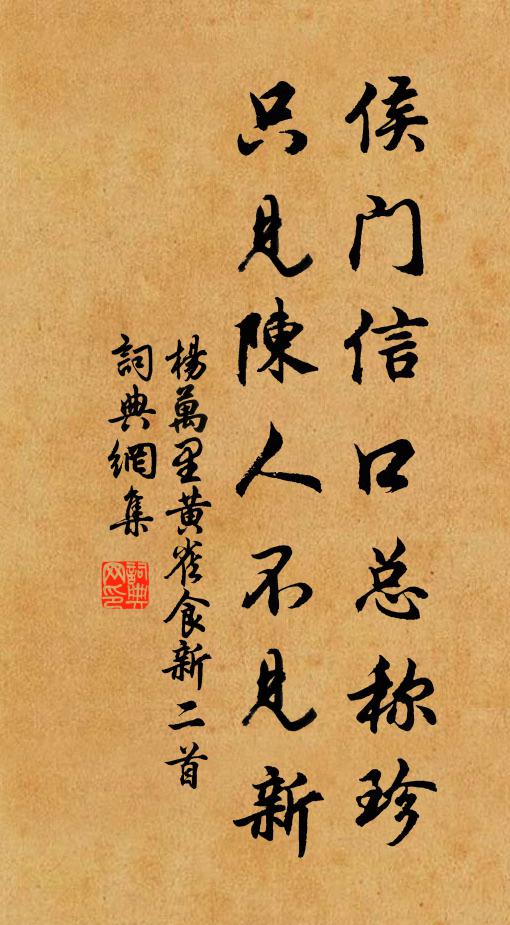 侯门信口总称珍
只见陳人不见新
楊萬里黄雀食新二首
詞典網集
詞典网印